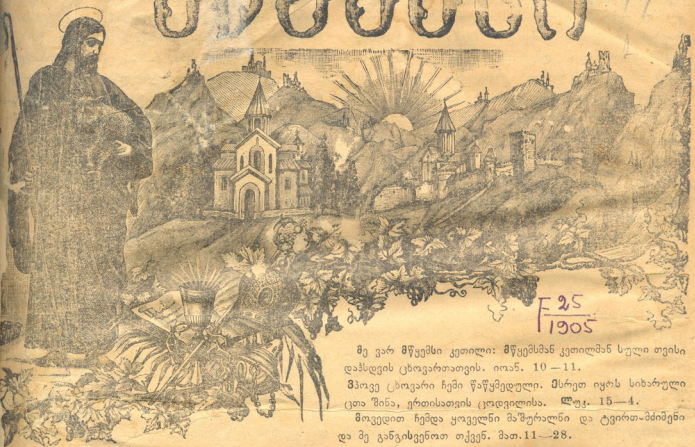 F 25
1905
მე ვარ მწყემსი კეთილი: მწყემსმან კეთილმან სული თვისი
დაჰსდვის ცხოვართათვის. იოან. 10—11.
ვპოვე ცხოვარი ჩემი წაწყმედული. ესრეთ იყოს სიხარული
ცთა შინა, ერთისათვის ცოდვილისა. ლუკ. 15—4.
მოვედით ჩემდა ყოველნი მაშურალნი და ტვირთ-მძიმენი
და მე განგისვენოთ თქვენ. მათ.11—28.